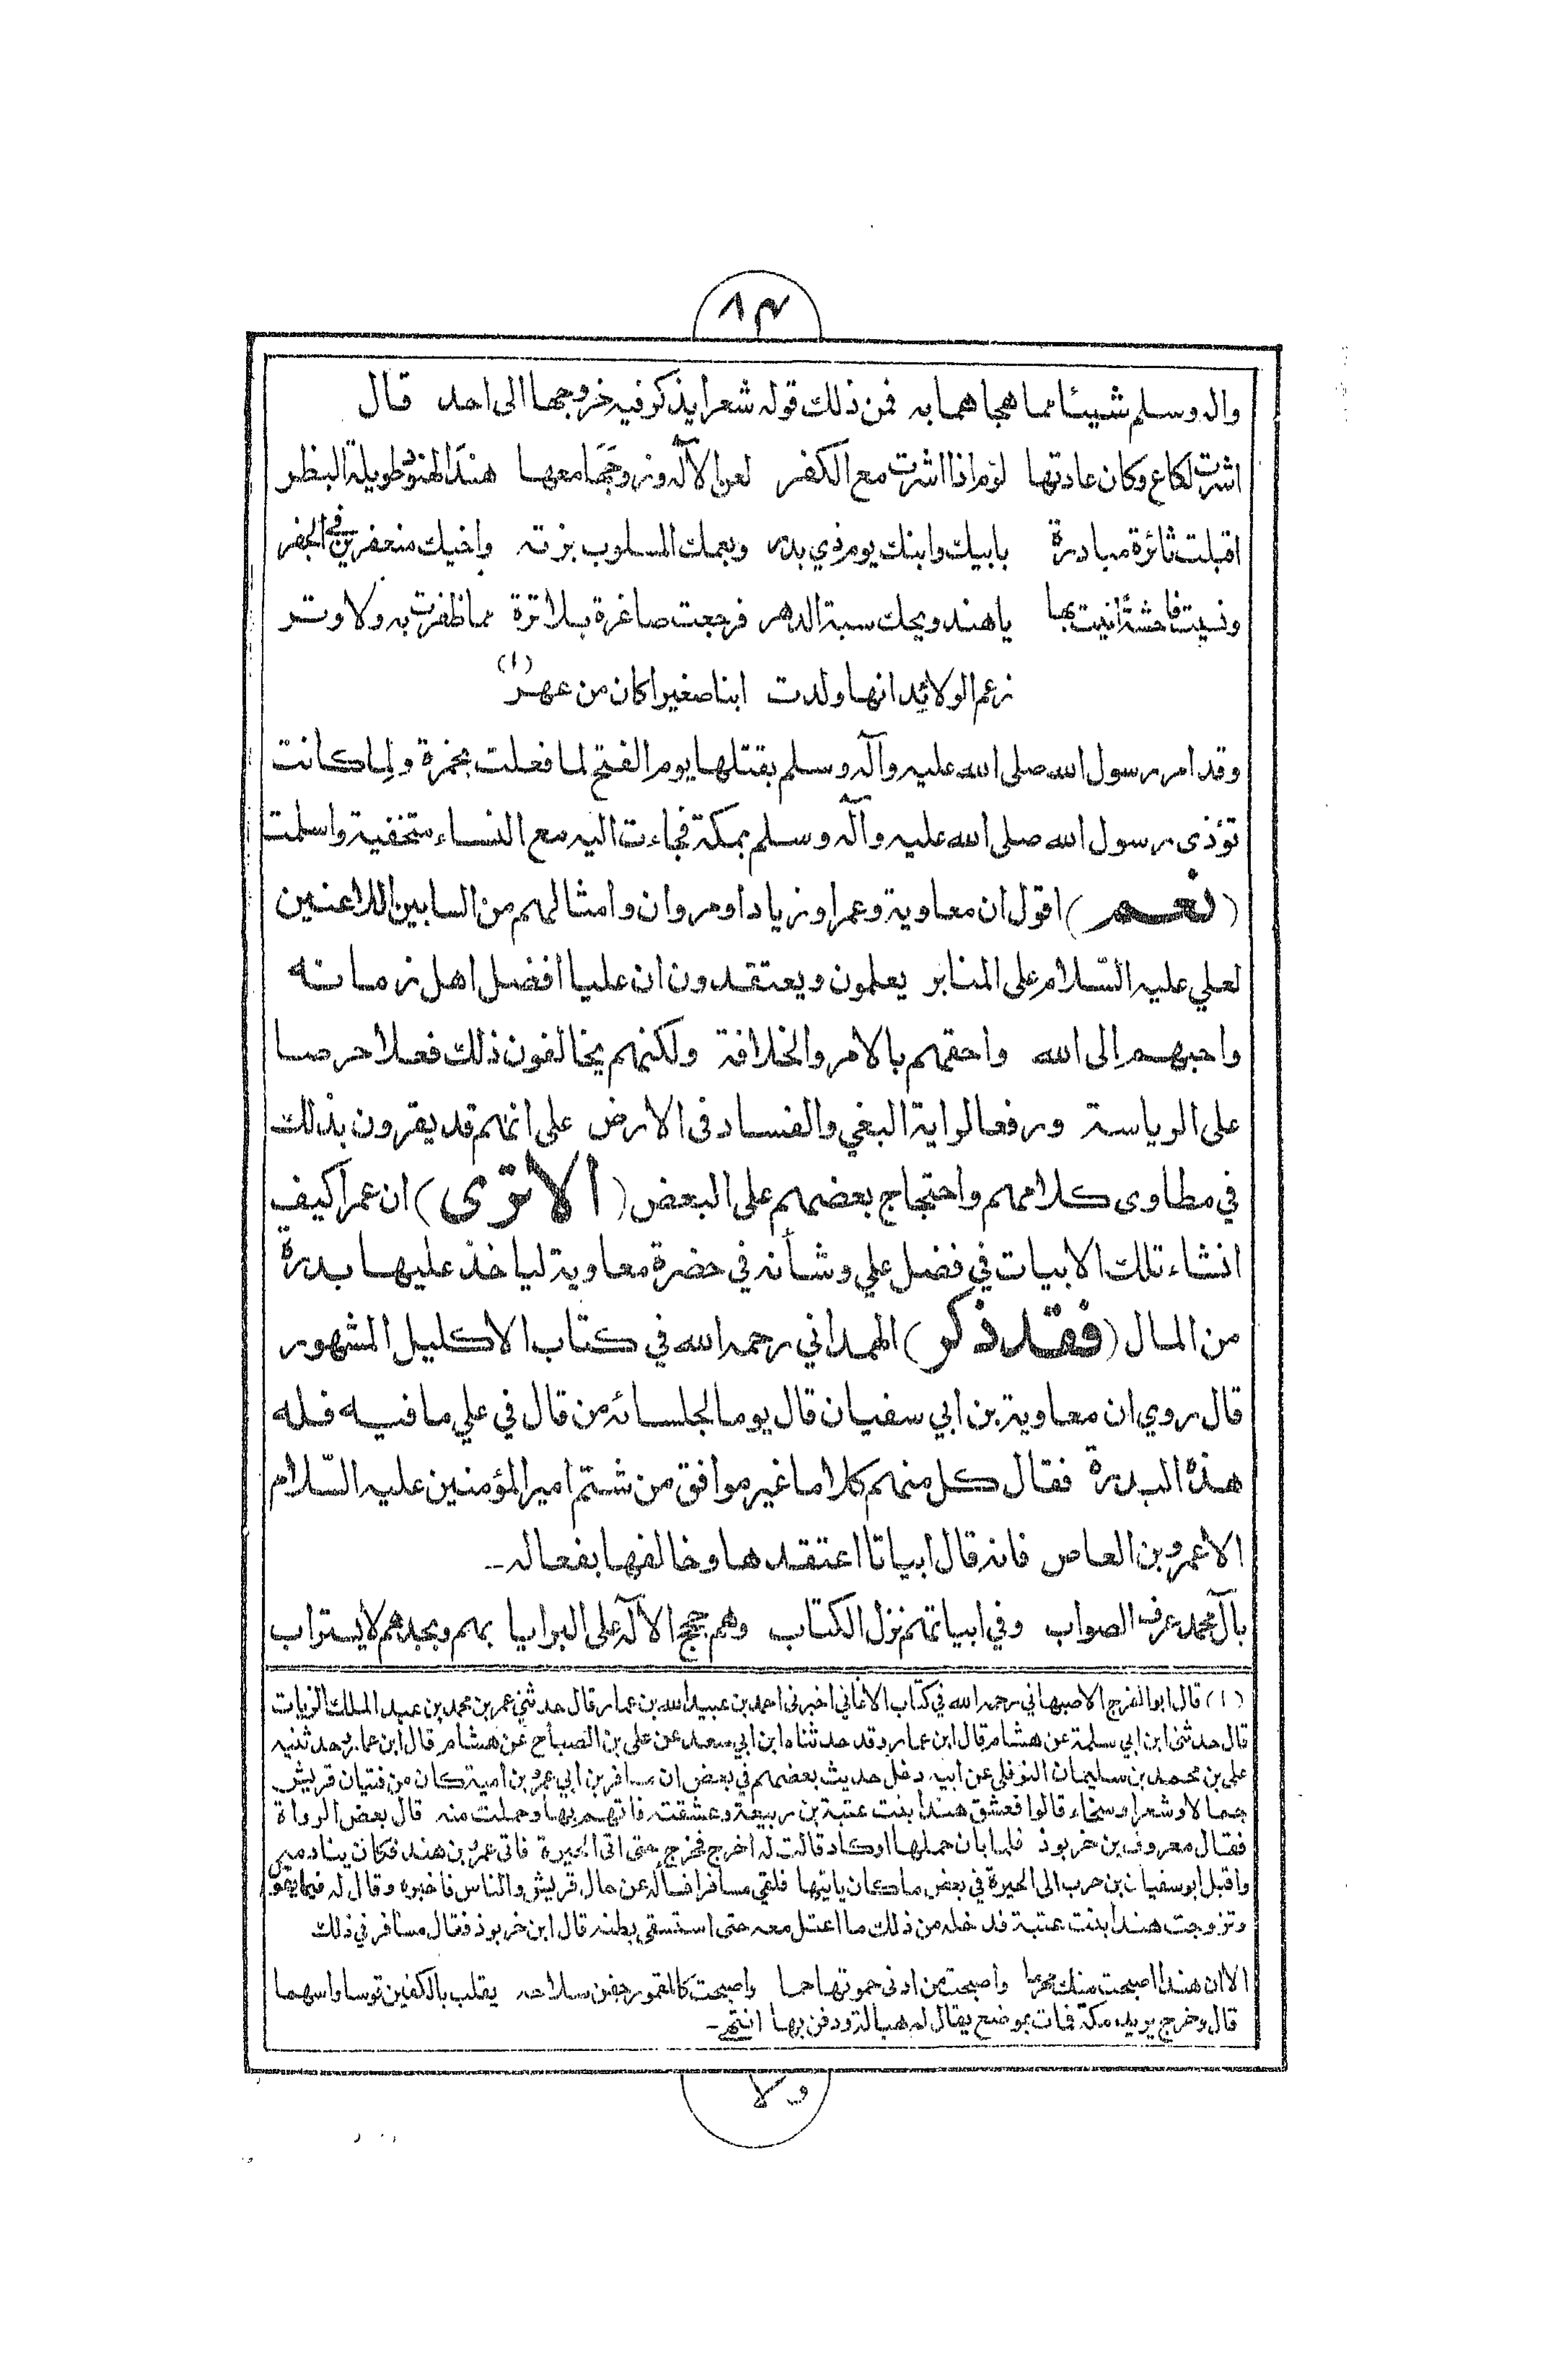 ٨٣
واله وسلم شيئا مما هجاهما به فمن ذلك قوله شعرا يذكر فيه خروجها الى احد قال
اشرت لكاع وكان عادتها لؤم اذا اشرت مع الكفر لعن الآله وزوجها معها هند الهنود طويلة البظر
اقبلت ثائرة مبادرة بابيك وابنك يوم ذي بدر وبعمك المسلوب بزته واخيك منعفرين في الجفر
ونسيت فاحشة اتيت بها ياهند ويحك سبة الدهر فرجعت صاغرة بلا ترة مما ظفرت به ولا وتر
زعم الولائد انها ولدت ابنا صغيرا كان من عهر (١)
وقد امر رسول الله صلى الله عليه وآله وسلم بقتلها يوم الفتح لما فعلت بحمزة ولما كانت
تؤذى رسول الله صلى الله عليه وآله وسلم بمكة فجاءت اليه مع النساء متخفية واسلمت
(نعم) اقول ان معاوية وعمرا وزيادا ومروان وامثالهم من السابين اللاعنين
لعلي عليه السّلام على المنابر يعلمون ويعتقدون ان عليا افضل اهل زمانه
واحبهم الى الله واحقهم بالامر والخلافة ولكنهم يخالفون ذلك فعلا حرصا
على الرياسة ورفعا لراية البغي والفساد فى الارض على انهم قد يقرون بذلك
في مطاوى كلامهم واحتجاج بعضهم على البعض (الاترى) ان عمرا كيف
انشاء تلك الابيات في فضل علي وشأنه في حضرة معاوية لياخذ عليها بدرة
من المال (فقد ذكر) الهمداني رحمه الله في كتاب الاكليل المشهور
قال روي ان معاوية بن ابي سفيان قال يوما لجلسائه من قال في علي ما فيه فله
هذه البدرة فقال كل منهم كلاما غير موافق من شتم امير المؤمنين عليه السّلام
الا عمرو بن العاص فانه قال ابياتا اعتقدها وخالفها بفعاله ــ
بآل محمد عرف الصواب وفي ابياتهم نزل الكتاب وهم حجج الآله على البرايا بهم وبجدهم لا يستراب
(١) قال ابو الفرج الاصبهاني رحمه الله في كتاب الاغاني اخبرنى احمد بن عبيد الله بن عمار قال حدثني عمر بن محمد بن عبد الملك الزيات
قال حدثنى ابن ابي سلمة عن هشام قال ابن عمار وقد حدثناه ابن ابي سعد عن علي بن الصباح عن هشام قال ابن عمار وحدثنيه
علي بن محمد بن سليمان النوفلي عن ابيه دخل حديث بعضهم في بعض ان مسافر بن ابي عمرو بن امية كان من فتيان قريش
جمالا وشعرا وسخاء قالوا فعشق هندا بنت عتبة بن ربيعة وعشقته فاتهم بها وحملت منه قال بعض الرواة
فقال معروف بن خربوذ فلما بان حملها او كاد قالت له اخرج فخرج حتى اتى الحيرة فاتى عمرو بن هند فكان ينادمه
واقبل ابو سفيان بن حرب الى الحيرة في بعض ما كان ياتيها فلقي مسافرا فسأله عن حال قريش والناس فاخبره وقال له فيما يقول
وتزوجت هندا بنت عتبة فدخله من ذلك ما اعتل معه حتى استسقي بطنه قال ابن خربوذ فقال مسافر في ذلك
الا ان هندا اصبحت منك محرما واصبحت من ادنى حموتها حما واصبحت كالمقمور جفن سلاحه يقلب بالكفين قوسا واسهما
قال وخرج يريد مكة فمات بموضع يقال له هبالة ودفن بها انتهى ــ
ولا